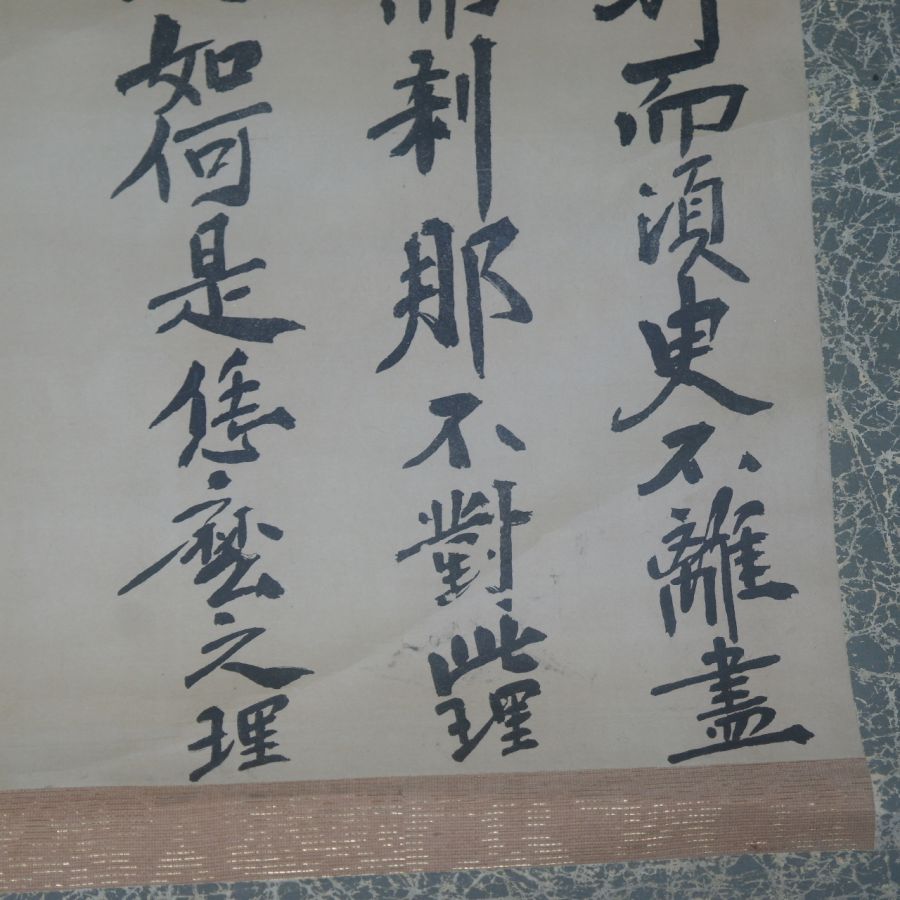 而須臾不離盡
而剎那不對此理
如何是恁麼之理